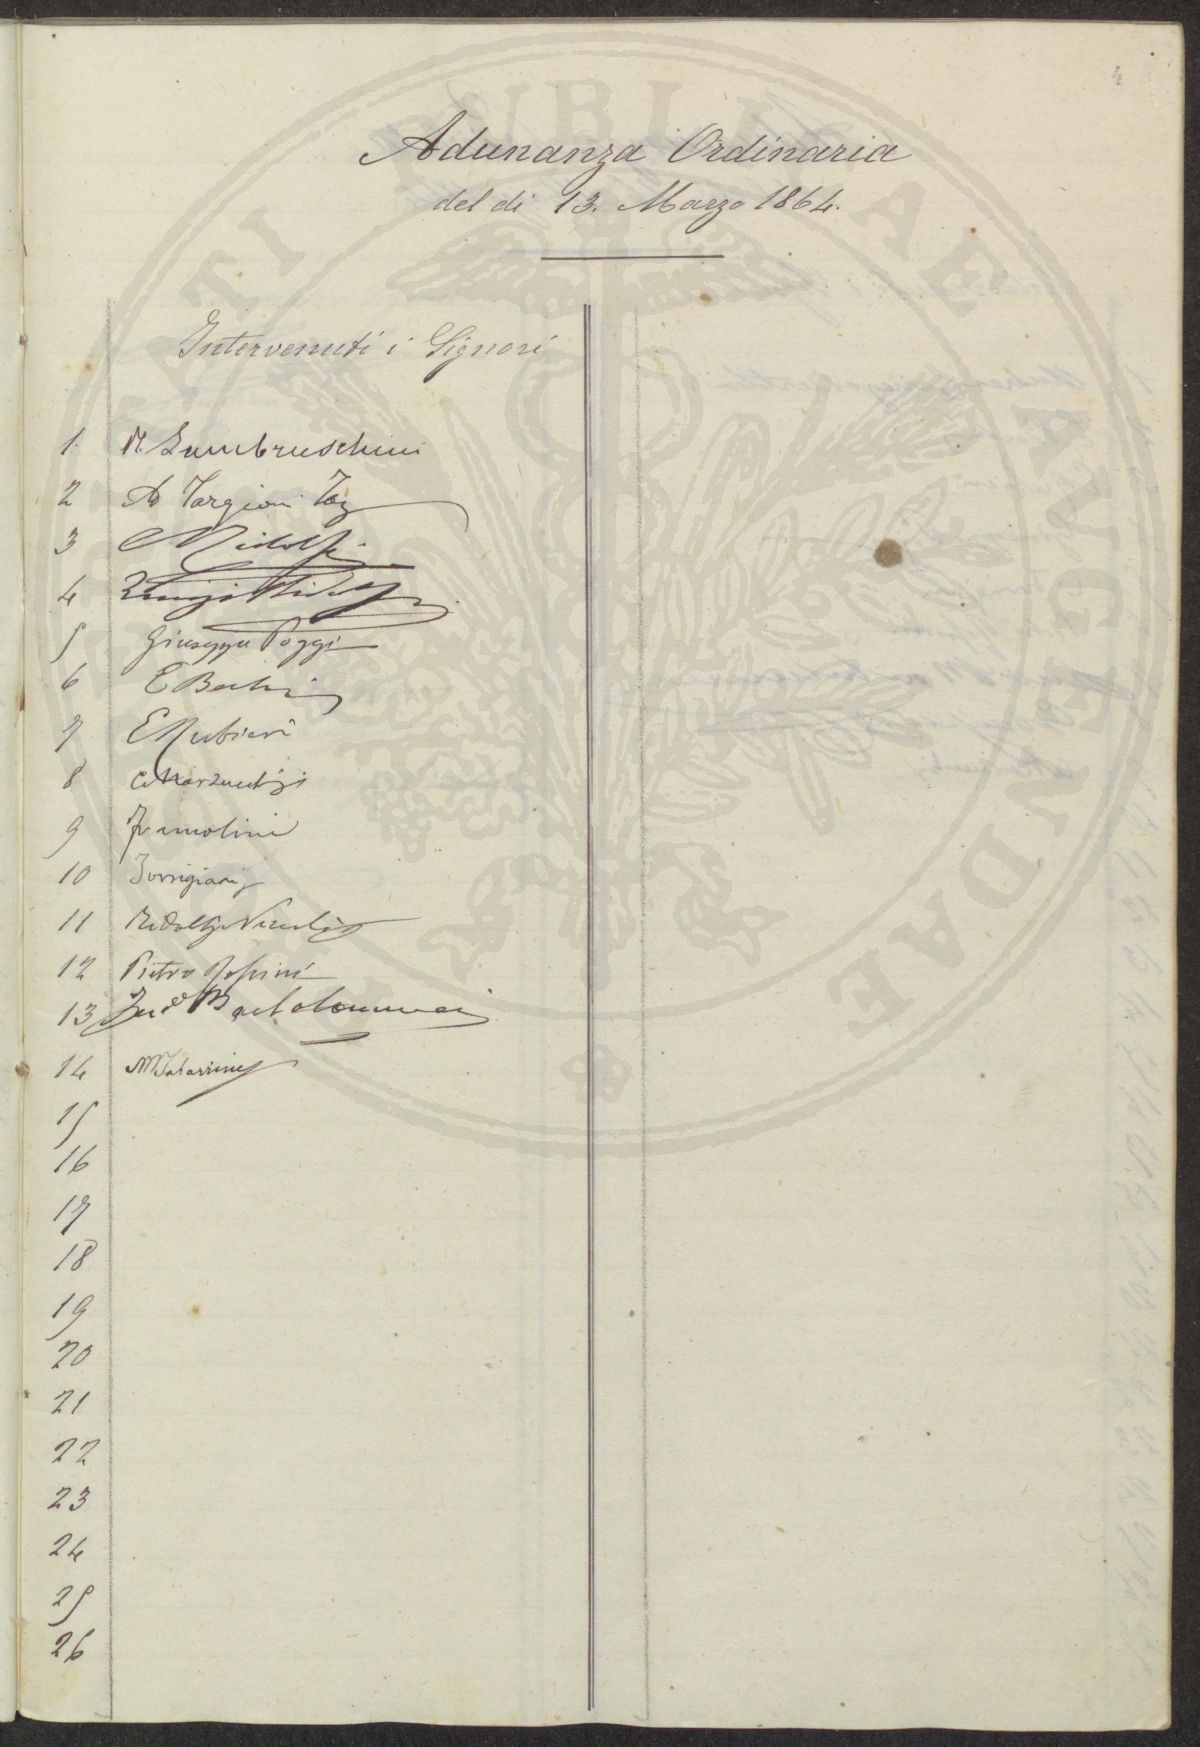 4
Adunanza Ordinaria
del di 13. Marzo 1864.
Intervenuti i Signori
1. R. Lambruschini
2 A Targioni Toz
3 CRidolfi
4 Luigi Ridolfi
5 Giuseppe Poggi
6 E Bechi
7 ERubieri
8 C. Marzucchi
9
10 Torrigiani
11 Ridolfo
12 Pietro Rossini
13 Ferd. Bartolommei
14 MTabarrini
15
16
17
18
19
20
21
22
23
24
25
26